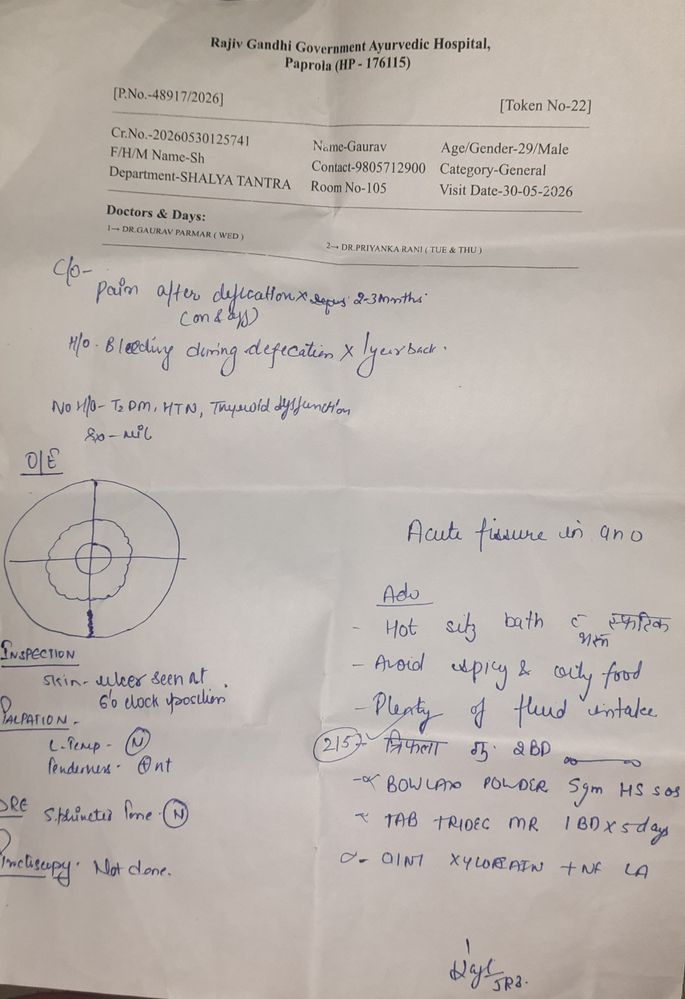 Rajiv Gandhi Government Ayurvedic Hospital,
Paprola (HP - 176115)
[P.No.-48917/2026]
[Token No-22]
Cr.No.-20260530125741 Name-Gaurav Age/Gender-29/Male
F/H/M Name-Sh Contact-9805712900 Category-General
Department-SHALYA TANTRA Room No-105 Visit Date-30-05-2026
Doctors & Days:
1→ DR.GAURAV PARMAR ( WED ) 2→ DR.PRIYANKA RANI ( TUE & THU )
C/O-
Pain after defication x 2-3 months
(on & off)
H/O - Bleeding during defecation x 1 year back.
No H/O - T2 DM, HTN, Thyroid dysfunction
- Nil
O/E
INSPECTION
Skin - ulcer seen at
6'0 clock position
PALPATION -
L. Temp - (N)
Tenderness -
DRE Sphincter Tone - (N)
Proctiscopy - Not done.
Acute fissure in ano
Adv
- Hot sitz bath c̄ स्फटिक
भस्म
- Avoid spicy & oily food
- Plenty of fluid intake
(215) त्रिफला गु. 2BD
- BOWLAX POWDER 5gm HS SOS
- TAB TRIDEC MR 1 BD x 5 days
- OINT + NF LA
JR3.